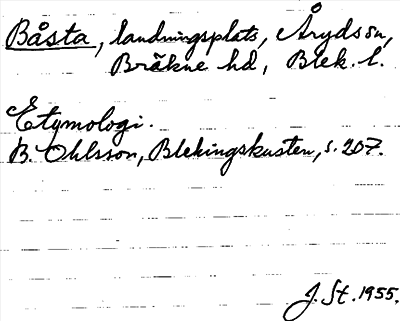 Båsta, landningsplats, Årydsön,
Bräkne hd, Blek. l.
Etymologi.
B. Ohlsson, Blekingskusten, s. 207.
J. St. 1955.